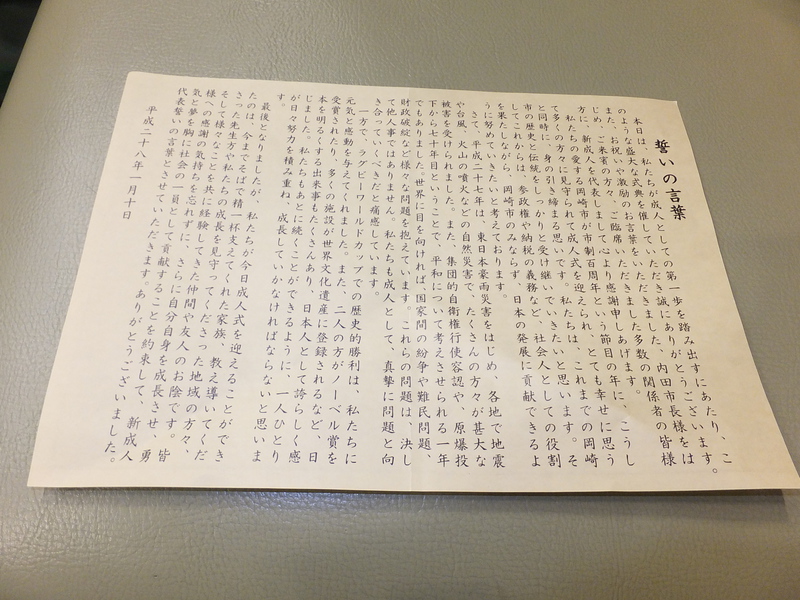 誓いの言葉
本日は、私たちが成人としての第一歩を踏み出すにあたり、こ
のような盛大な式典を催していただき誠にありがとうございます。
また、お祝いや激励のお言葉をいただきました、内田市長様をは
じめ、ご来賓の方々、ご臨席いただきました多数の関係者の皆様
方に、新成人を代表しまして心より感謝申しあげます。
私たちの愛する岡崎市が市制百周年という節目の年に、こうし
て多くの方々に見守られて成人式を迎えられ、とても幸せに思う
と同時に、身の引き締まる思いです。私たちは、これまでの岡崎
市の歴史と伝統をしっかりと受け継いでいきたいと思います。そ
してこれからは、参政権や納税の義務など、社会人としての役割
を果たしながら、岡崎市のみならず、日本の発展に貢献できるよ
うに努めていきたいと考えております。
さて、平成二十七年は、東日本豪雨災害をはじめ、各地で地震
や台風、火山の噴火などの自然災害で、たくさんの方々が甚大な
被害を受けられました。また、集団的自衛権行使容認や、原爆投
下から七十年目ということで、平和について考えさせられる一年
でもありました。世界に目を向ければ、国家間の紛争や難民問題、
財政破綻など様々な問題を抱えています。これらの問題は、決し
て他人事ではありません。私たちも成人として、真摯に問題と向
き合っていくべきだと痛感しています。
一方で、ラグビーワールドカップでの歴史的勝利は、私たちに
元気と感動を与えてくれました。また、二人の方がノーベル賞を
受賞されたり、多くの施設が世界文化遺産に登録されるなど、日
本を明るくする出来事もたくさんあり、日本人として誇らしく感
じました。私たちもあとに続くことができるように、一人ひとり
が日々努力を積み重ね、成長していかなければならないと思いま
す。
最後となりましたが、私たちが今日成人式を迎えることができ
たのは、今までそばで精一杯支えてくれた家族、教え導いてくだ
さった先生方や私たちの成長を見守ってくださった地域の方々、
そして様々なことを共に経験してきた仲間や友人のお陰です。皆
様への感謝の気持ちを忘れずに、さらに自分自身を成長させ、勇
気と夢を胸に社会の一員として貢献することを約束して、新成人
代表誓いの言葉とさせていただきます。ありがとうございました。
平成二十八年一月十日